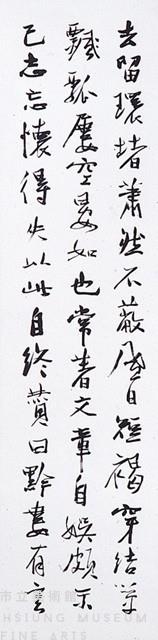 去留環堵蕭然不蔽風日短褐穿結簞
瓢瓢屢空晏如也常著文章自娛頗示
己志忘懷得失以此自終贊曰黔婁有言
市立美術館
HSIUNG MUSEUM
FINE ARTS